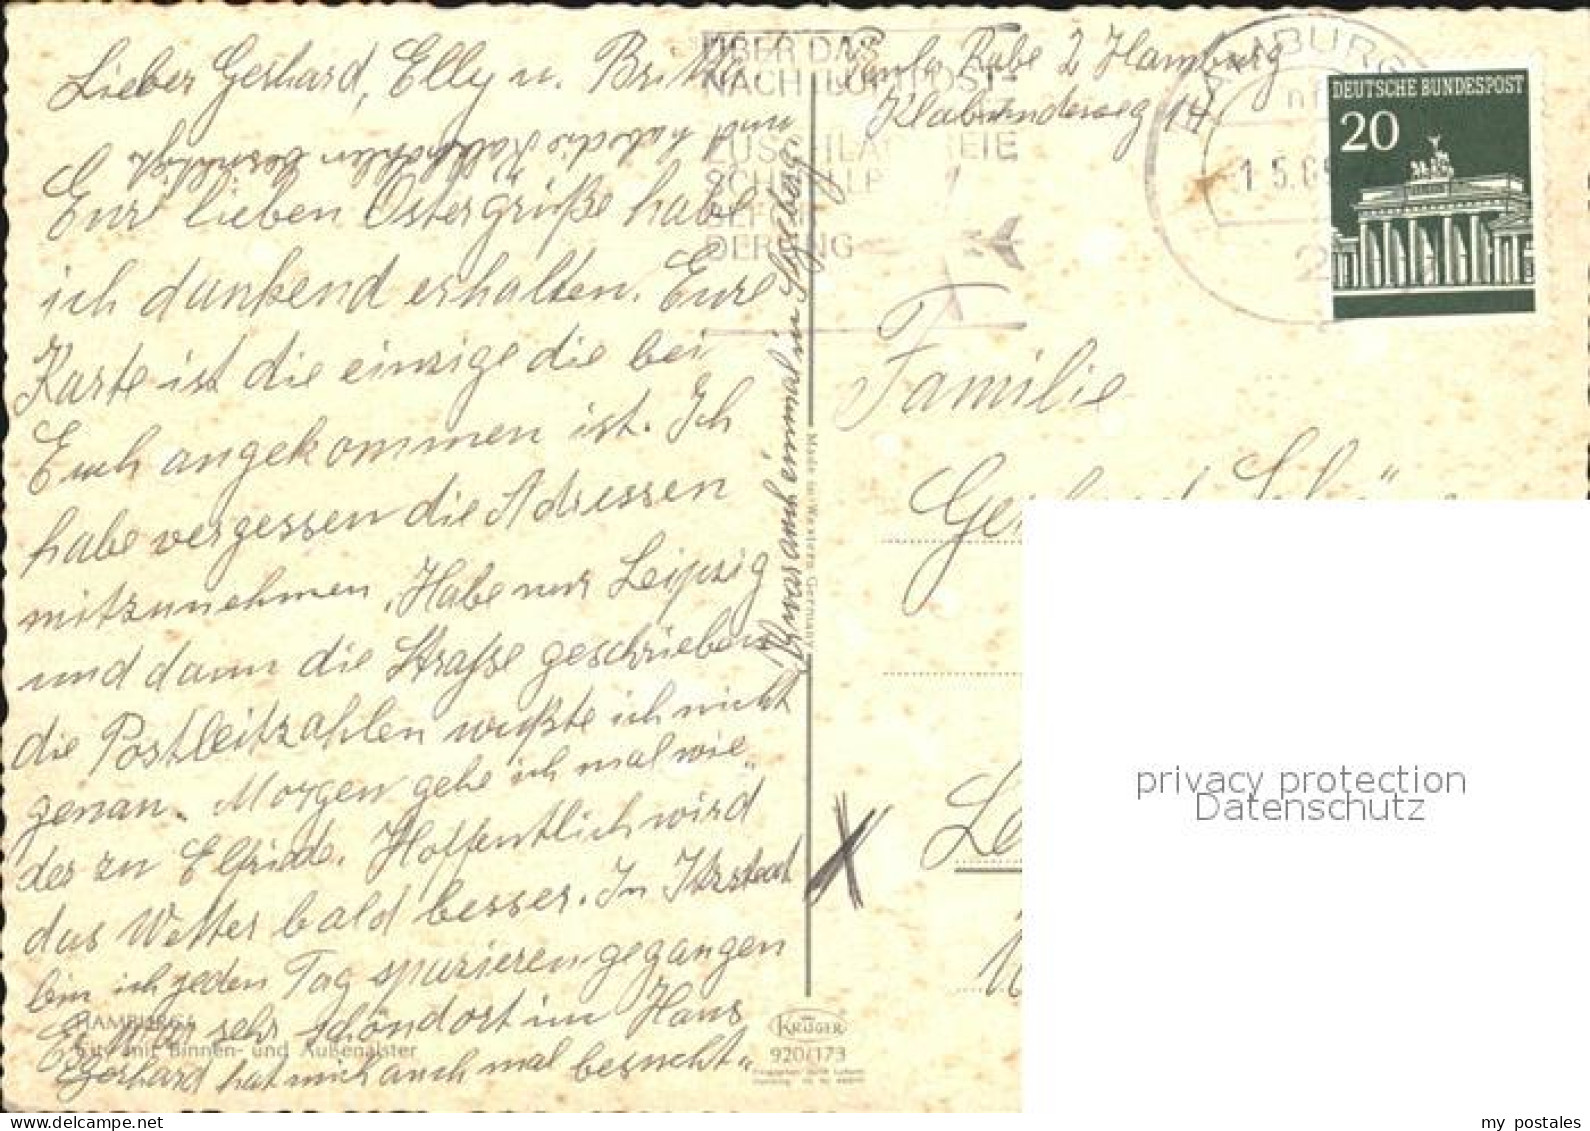 Lieber Gerhard, Elly u. Britt
Eure lieben Ostergrüße habe
ich dankend erhalten. Eure
Karte ist die einzige die bei
Euch angekommen ist. Ich
habe vergessen die Adressen
mitzunehmen. Habe nur Leipzig
und dann die Straße geschrieben
die Postleitzahlen wußte ich nicht
genau. Morgen gehe ich mal wie„
der zu Elfriede. Hoffentlich wird
das Wetter bald besser. In
bin ich jeden Tag spazieren gegangen
sehr schön dort im Haus
Gerhard hat mich auch mal besucht„
war auch einmal in Segeberg
und habe die
HAMBURG
City mit Binnen- und Außenalster
Made in Western Germany
KRÜGER
920/173
Rabe 2 Hamburg
Klabundeweg 14
ÜBER DAS
NACH LUFTPOST-
ZUSCHLAGFREIE
SCHNELLE
BEFÖR
DERUNG
HAMBURG
1.5.6
2
DEUTSCHE BUNDESPOST
20
Familie
Gerhard
Le
privacy protection
Datenschutz
my postales